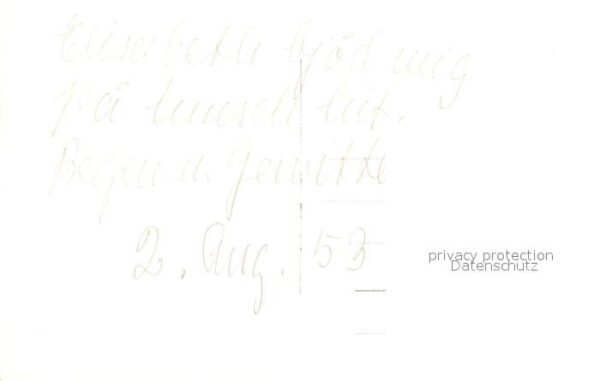 Elisabeth bjöd mig
på lunsch hit.
Regen u. Gewitter
2. Aug. 53
privacy protection
Datenschutz